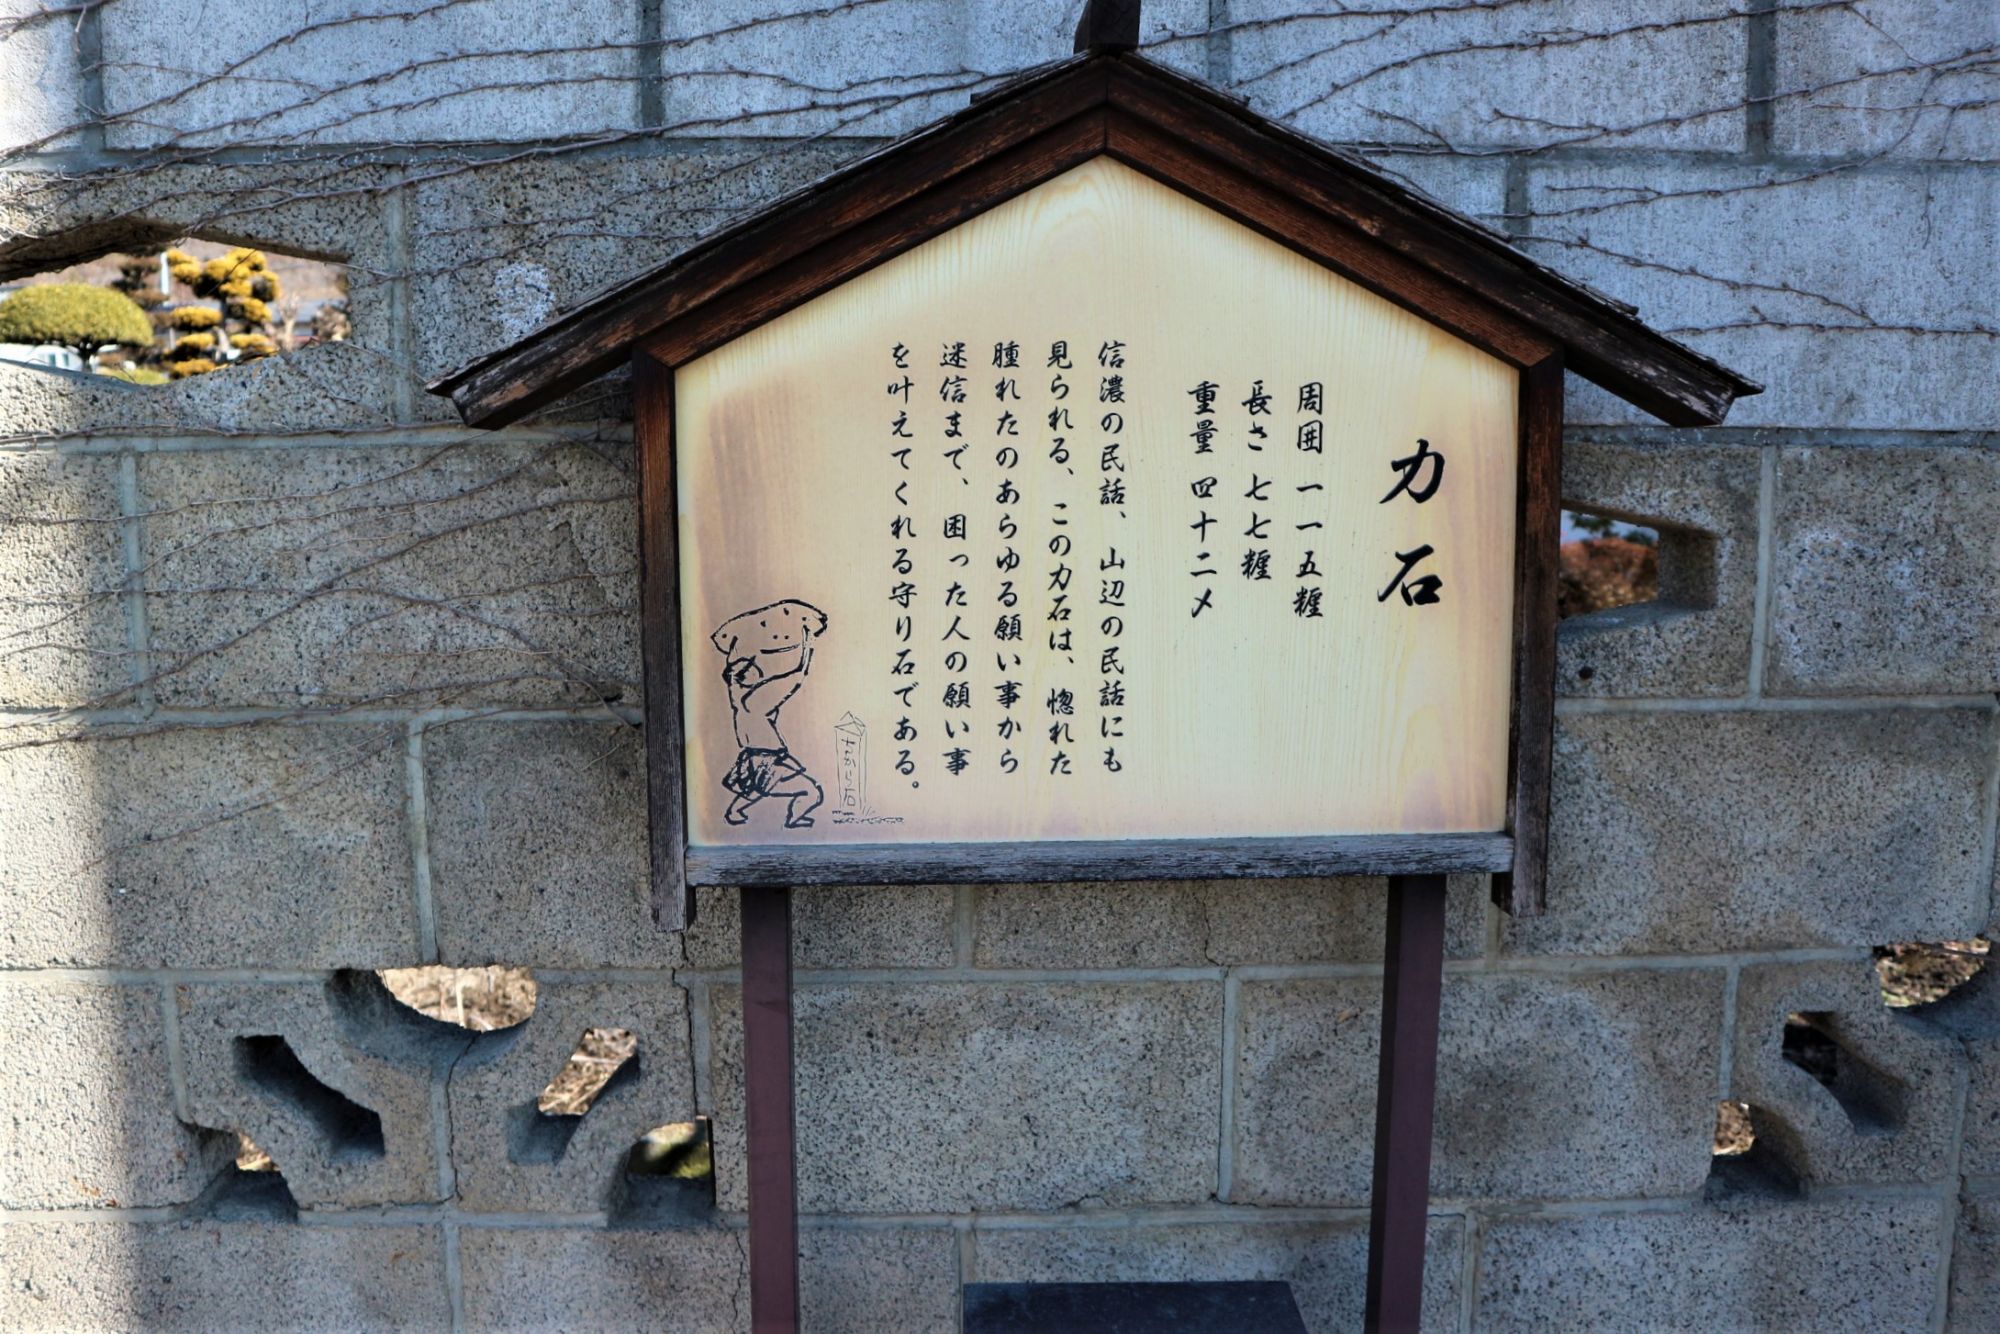 力石
周囲 一一五糎
長さ 七七糎
重量 四十二〆
信濃の民話、山辺の民話にも
見られる、この力石は、惚れた
腫れたのあらゆる願い事から
迷信まで、困った人の願い事
を叶えてくれる守り石である。
力石